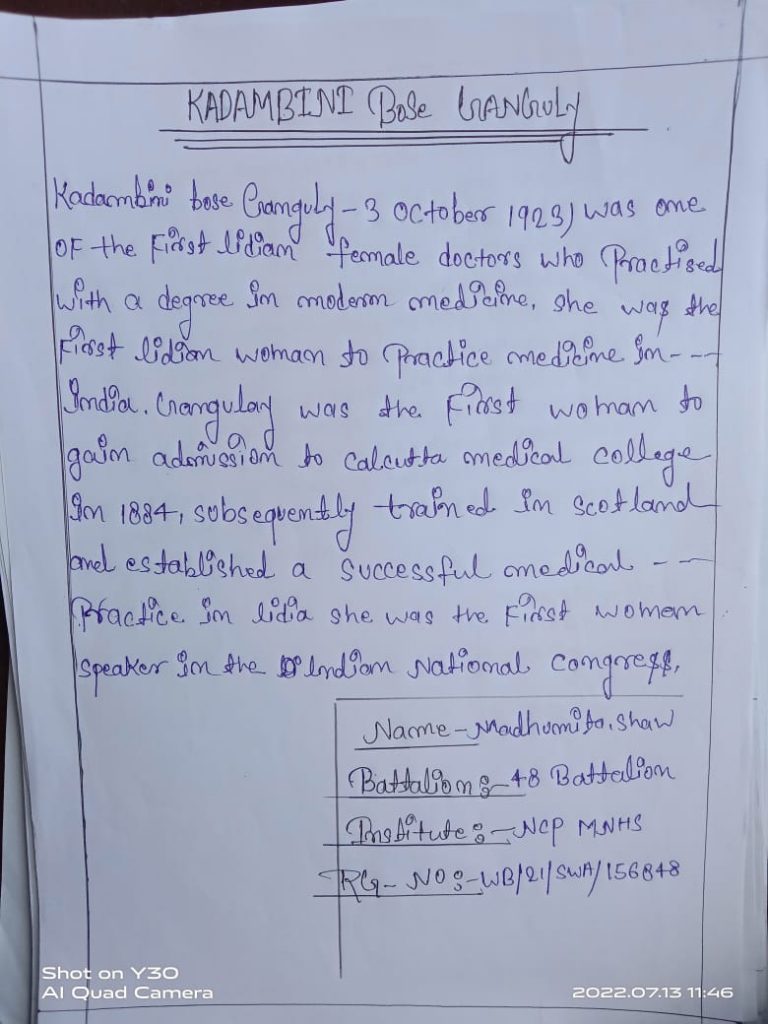 KADAMBINI Bose GANGULY
Kadambini bose Ganguly - 3 October 1923) was one
OF the First lidian female doctors who Practised
with a degree in modern medicine, she was the
First lidian woman to Practice medicine in - --
India. Gangulay was the First woman to
gain admission to calcutta medical college
in 1884, subsequently trained in scotland
and established a successful medical - --
Practice in lidia she was the First woman
speaker in the Indian National congress,
Name - Madhumita. Shaw
Battalion :- 48 Battalion
Institute :- NCP MNHS
RG - NO :- WB/21/SWA/156848
Shot on Y30
AI Quad Camera
2022.07.13 11:46